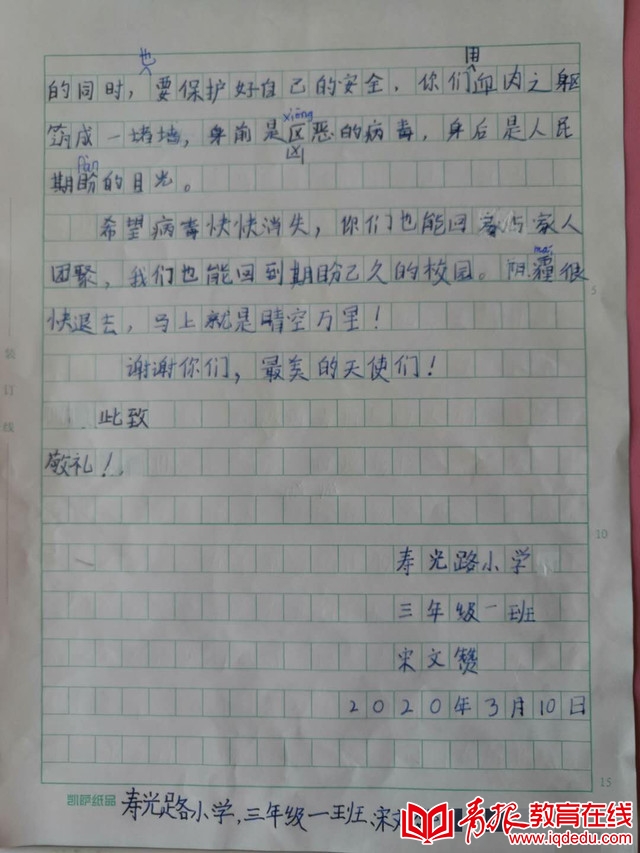 也 用
的同时，要保护好自己的安全，你们血肉之躯
筑成一堵墙，身前是凶恶的病毒，身后是人民
xiōng
凶
pàn
期盼的目光。
希望病毒快快消失，你们也能回家与家人
团聚，我们也能回到期盼已久的校园。阴霾很
mái
快退去，马上就是晴空万里！
谢谢你们，最美的天使们！
此致
敬礼！
寿光路小学
三年级一班
宋文赞
2020年3月10日
5
10
15
装订线
凯萨纸品
寿光路小学，三年级一班、宋文
青报教育在线
www.iqdedu.com